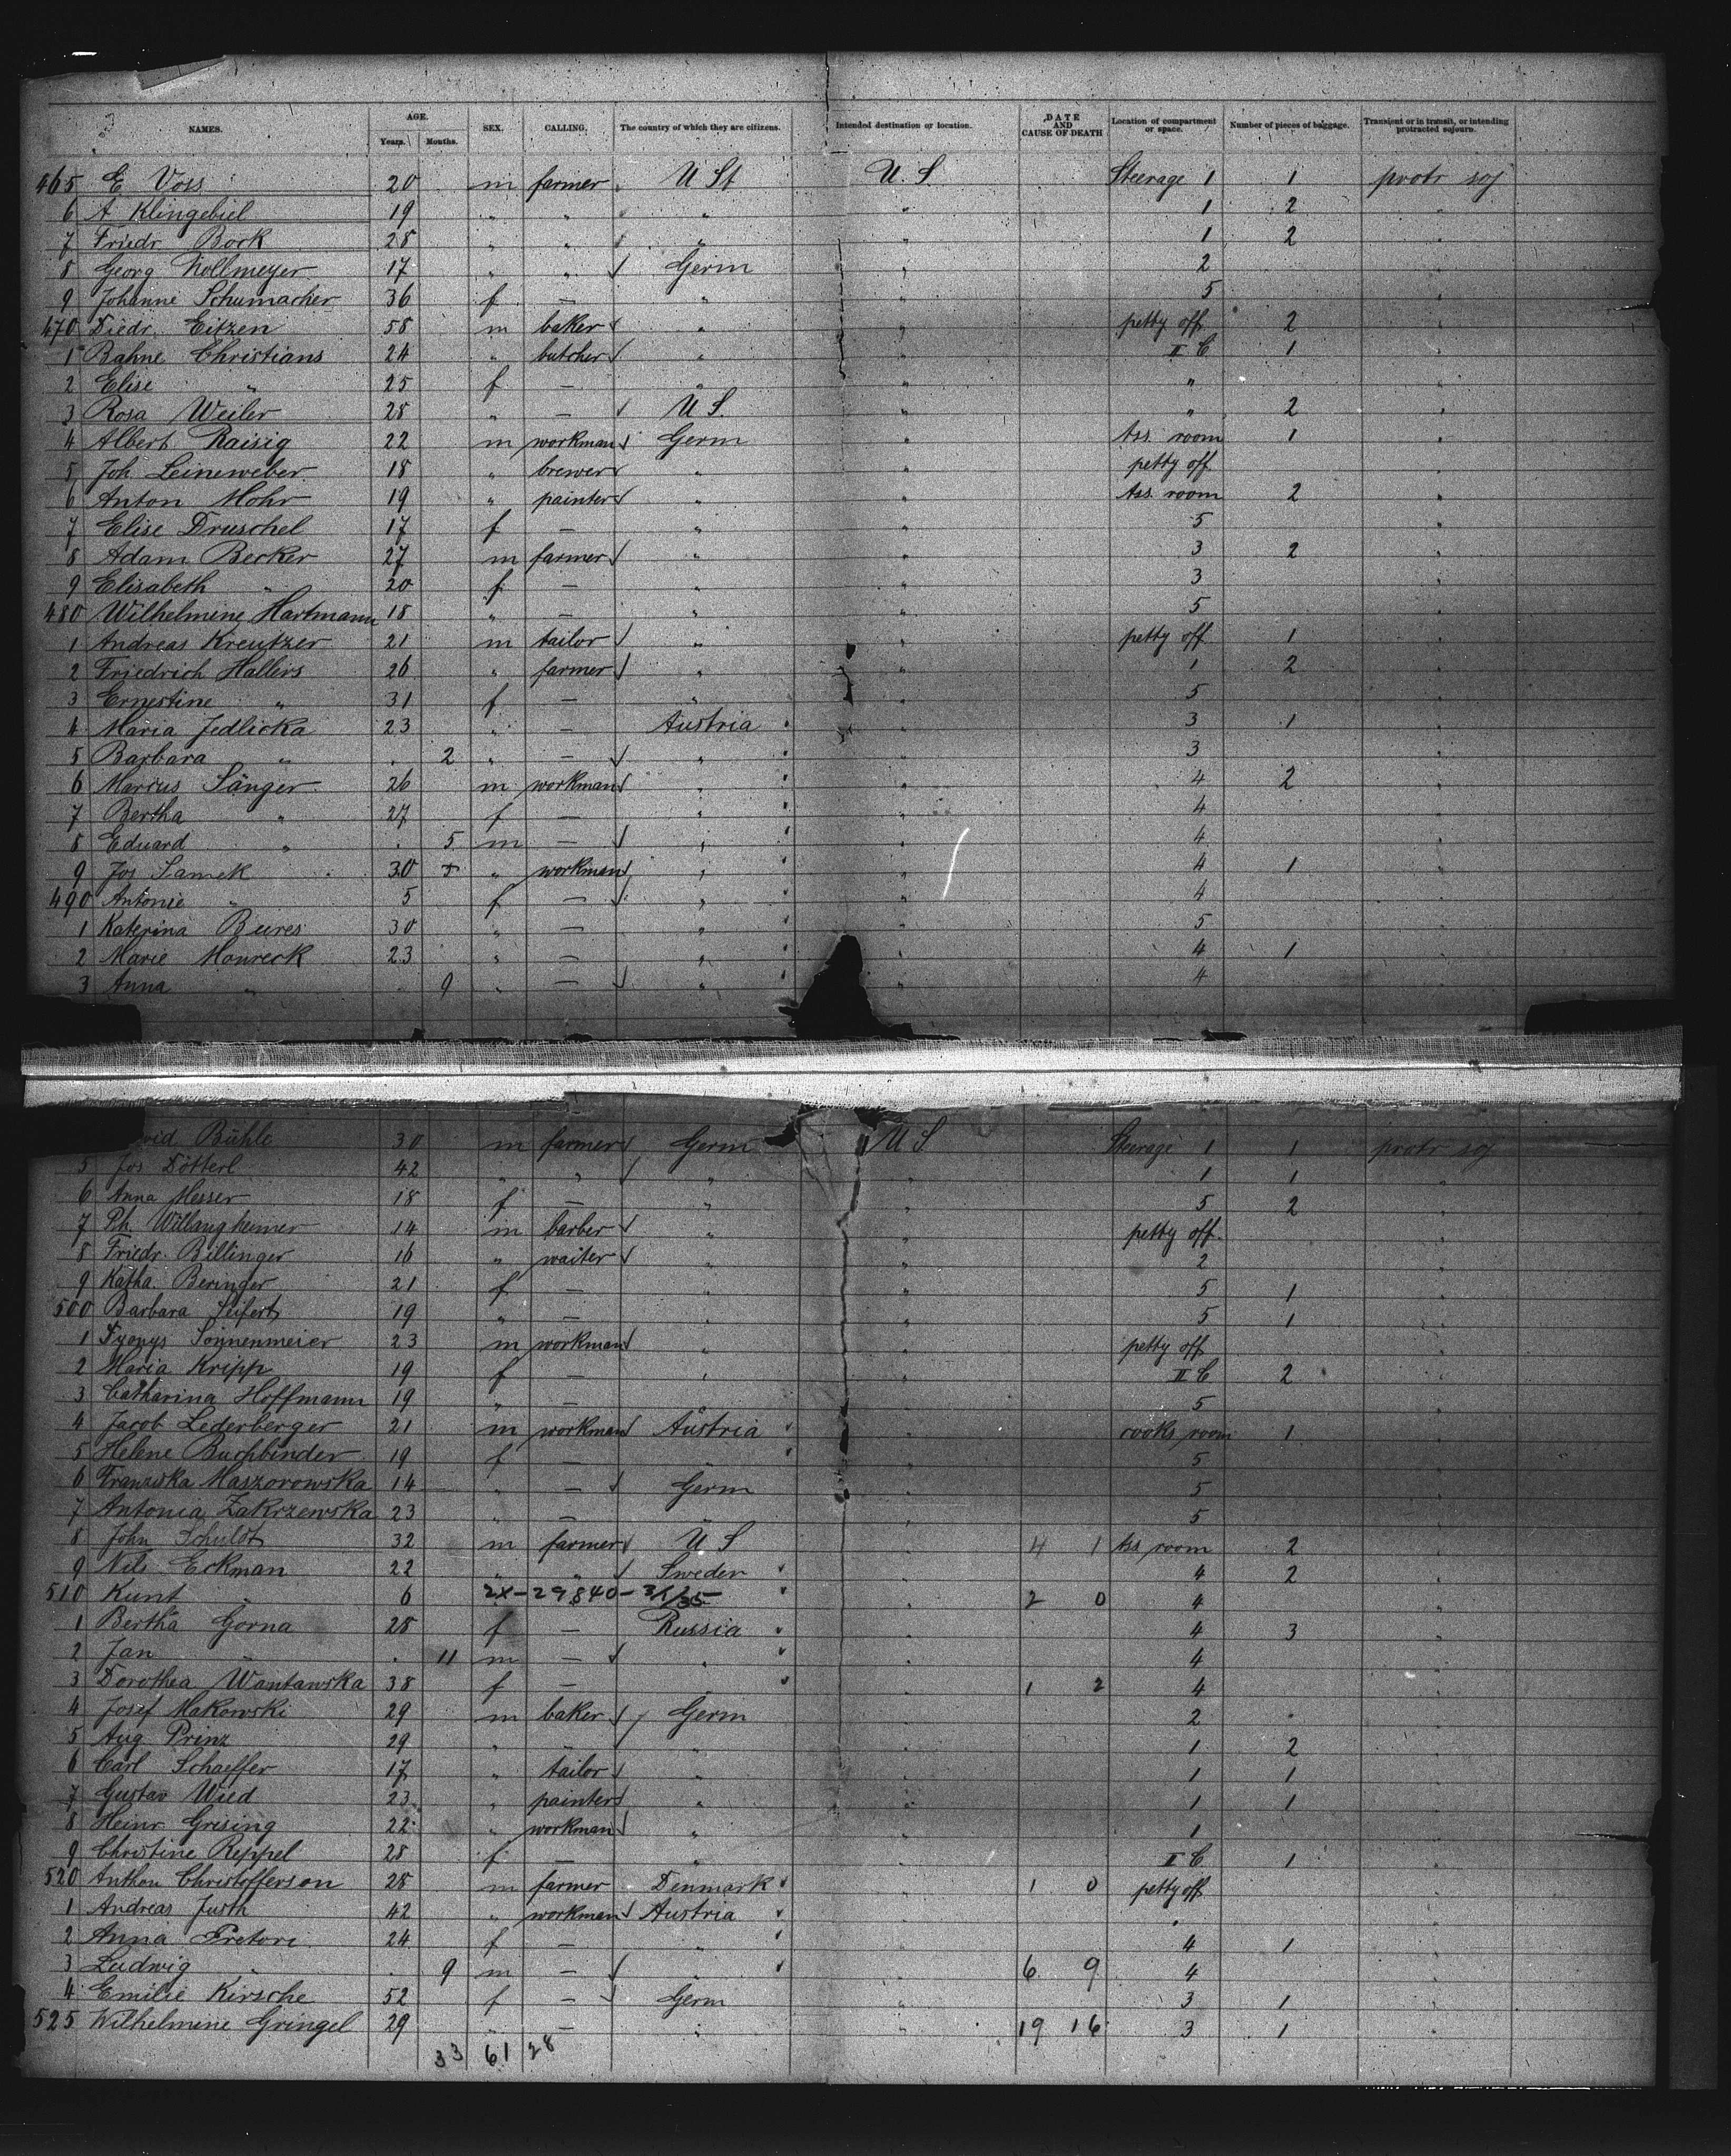 NAMES. AGE. Years. Months. SEX. CALLING. The country of which they are citizens. Intended destination or location. DATE AND CAUSE OF DEATH Location of compartment or space. Number of pieces of baggage. Transient or in transit, or intending protracted sojourn.
465 E Voss 20 m farmer U St U. S. Steerage 1 1 protr soj
6 A Klingebiel 19 " " " " 1 2 "
7 Friedr Bork 28 " " " " 1 2 "
8 Georg Nollmeyer 17 " " Germ " 2 "
9 Johanne Schumacher 36 f — " " 5 "
470 Diedr. Eitzen 58 m baker " " petty off 2 "
1 Bahne Christians 24 " butcher " " II C 1 "
2 Elise " 25 f — " " " "
3 Rosa Weiler 28 " — U S. " " 2 "
4 Albert Raisig 22 m workman Germ " Ass. room 1 "
5 Joh. Leineweber 18 " brewer " " petty off "
6 Anton Mohr 19 " painter " " Ass. room 2 "
7 Elise Druschel 17 f — " " 5 "
8 Adam Becker 27 m farmer " " 3 2 "
9 Elisabeth " 20 f — " " 3 "
480 Wilhelmine Hartmann 18 " — " " 5 "
1 Andreas Kreutzer 21 m tailor " " petty off 1 "
2 Friedrich Hallers 26 " farmer " " 1 2 "
3 Ernestine " 31 f — " " 5 "
4 Maria Jedlicka 23 " — Austria " 3 1 "
5 Barbara " . 2 " — " " 3 "
6 Marcus Sänger 26 m workman " " 4 2 "
7 Bertha " 27 f — " " 4 "
8 Eduard " . 5 m — " " 4 "
9 Jos Samek 30 " workman " " 4 1 "
490 Antonie " 5 f — " " 4 "
1 Katerina Bures 30 " — " " 5 "
2 Marie Moureck 23 " — " " 4 1 "
3 Anna " 9 " — " " 4 "
Bühle 30 m farmer Germ U S Steerage 1 1 protr soj
5 Jos Dötterl 42 " " " " 1 1 "
6 Anna Messer 18 f — " " 5 2 "
7 Ph. Willaugheimer 14 m barber " " petty off. "
8 Friedr. Billinger 16 " waiter " " 2 "
9 Katha. Beringer 21 f — " " 5 1 "
500 Barbara Seifert 19 " — " " 5 1 "
1 Dyonys Sonnenmeier 23 m workman " " petty off "
2 Maria Kripp 19 f — " " II C 2 "
3 Catharina Hoffmann 19 " — " " 5 "
4 Jacob Lederberger 21 m workman Austria " cooks room 1 "
5 Helene Buchbinder 19 f — " " 5 "
6 Franziska Maszorowska 14 " — Germ " 5 "
7 Antonia Zakrzewska 23 " — " " 5 "
8 John Schuldt 32 m farmer U S " 4 1 Ass room 2 "
9 Nils Eckman 22 " " Sweden " 4 2 "
510 Kunt " 6 2X-29840-3/1/35 " 2 0 4 "
1 Bertha Gorna 28 f — Russia " 4 3 "
2 Jan " . 11 m — " " 4 "
3 Dorothea Wantawska 38 f — " " 1 2 4 "
4 Josef Makowski 29 m baker Germ " 2 "
5 Aug Prinz 29 " " " " 1 2 "
6 Carl Schaeffer 17 " tailor " " 1 1 "
7 Gustav Wied 23 " painter " " 1 1 "
8 Heinr Grising 22 " workman " " 1 "
9 Christine Reppel 28 f — " " II C 1 "
520 Anthon Christofferson 28 m farmer Denmark " 1 0 petty off "
1 Andreas Juth 42 " workman Austria " " "
2 Anna Pretori 24 f — " " 4 1 "
3 Ludwig " . 9 m — " " 6 9 4 "
4 Emilie Kirsche 52 f — Germ " 3 1 "
525 Wilhelmine Gringel 29 " — " " 19 16 3 1 "
33 61 28